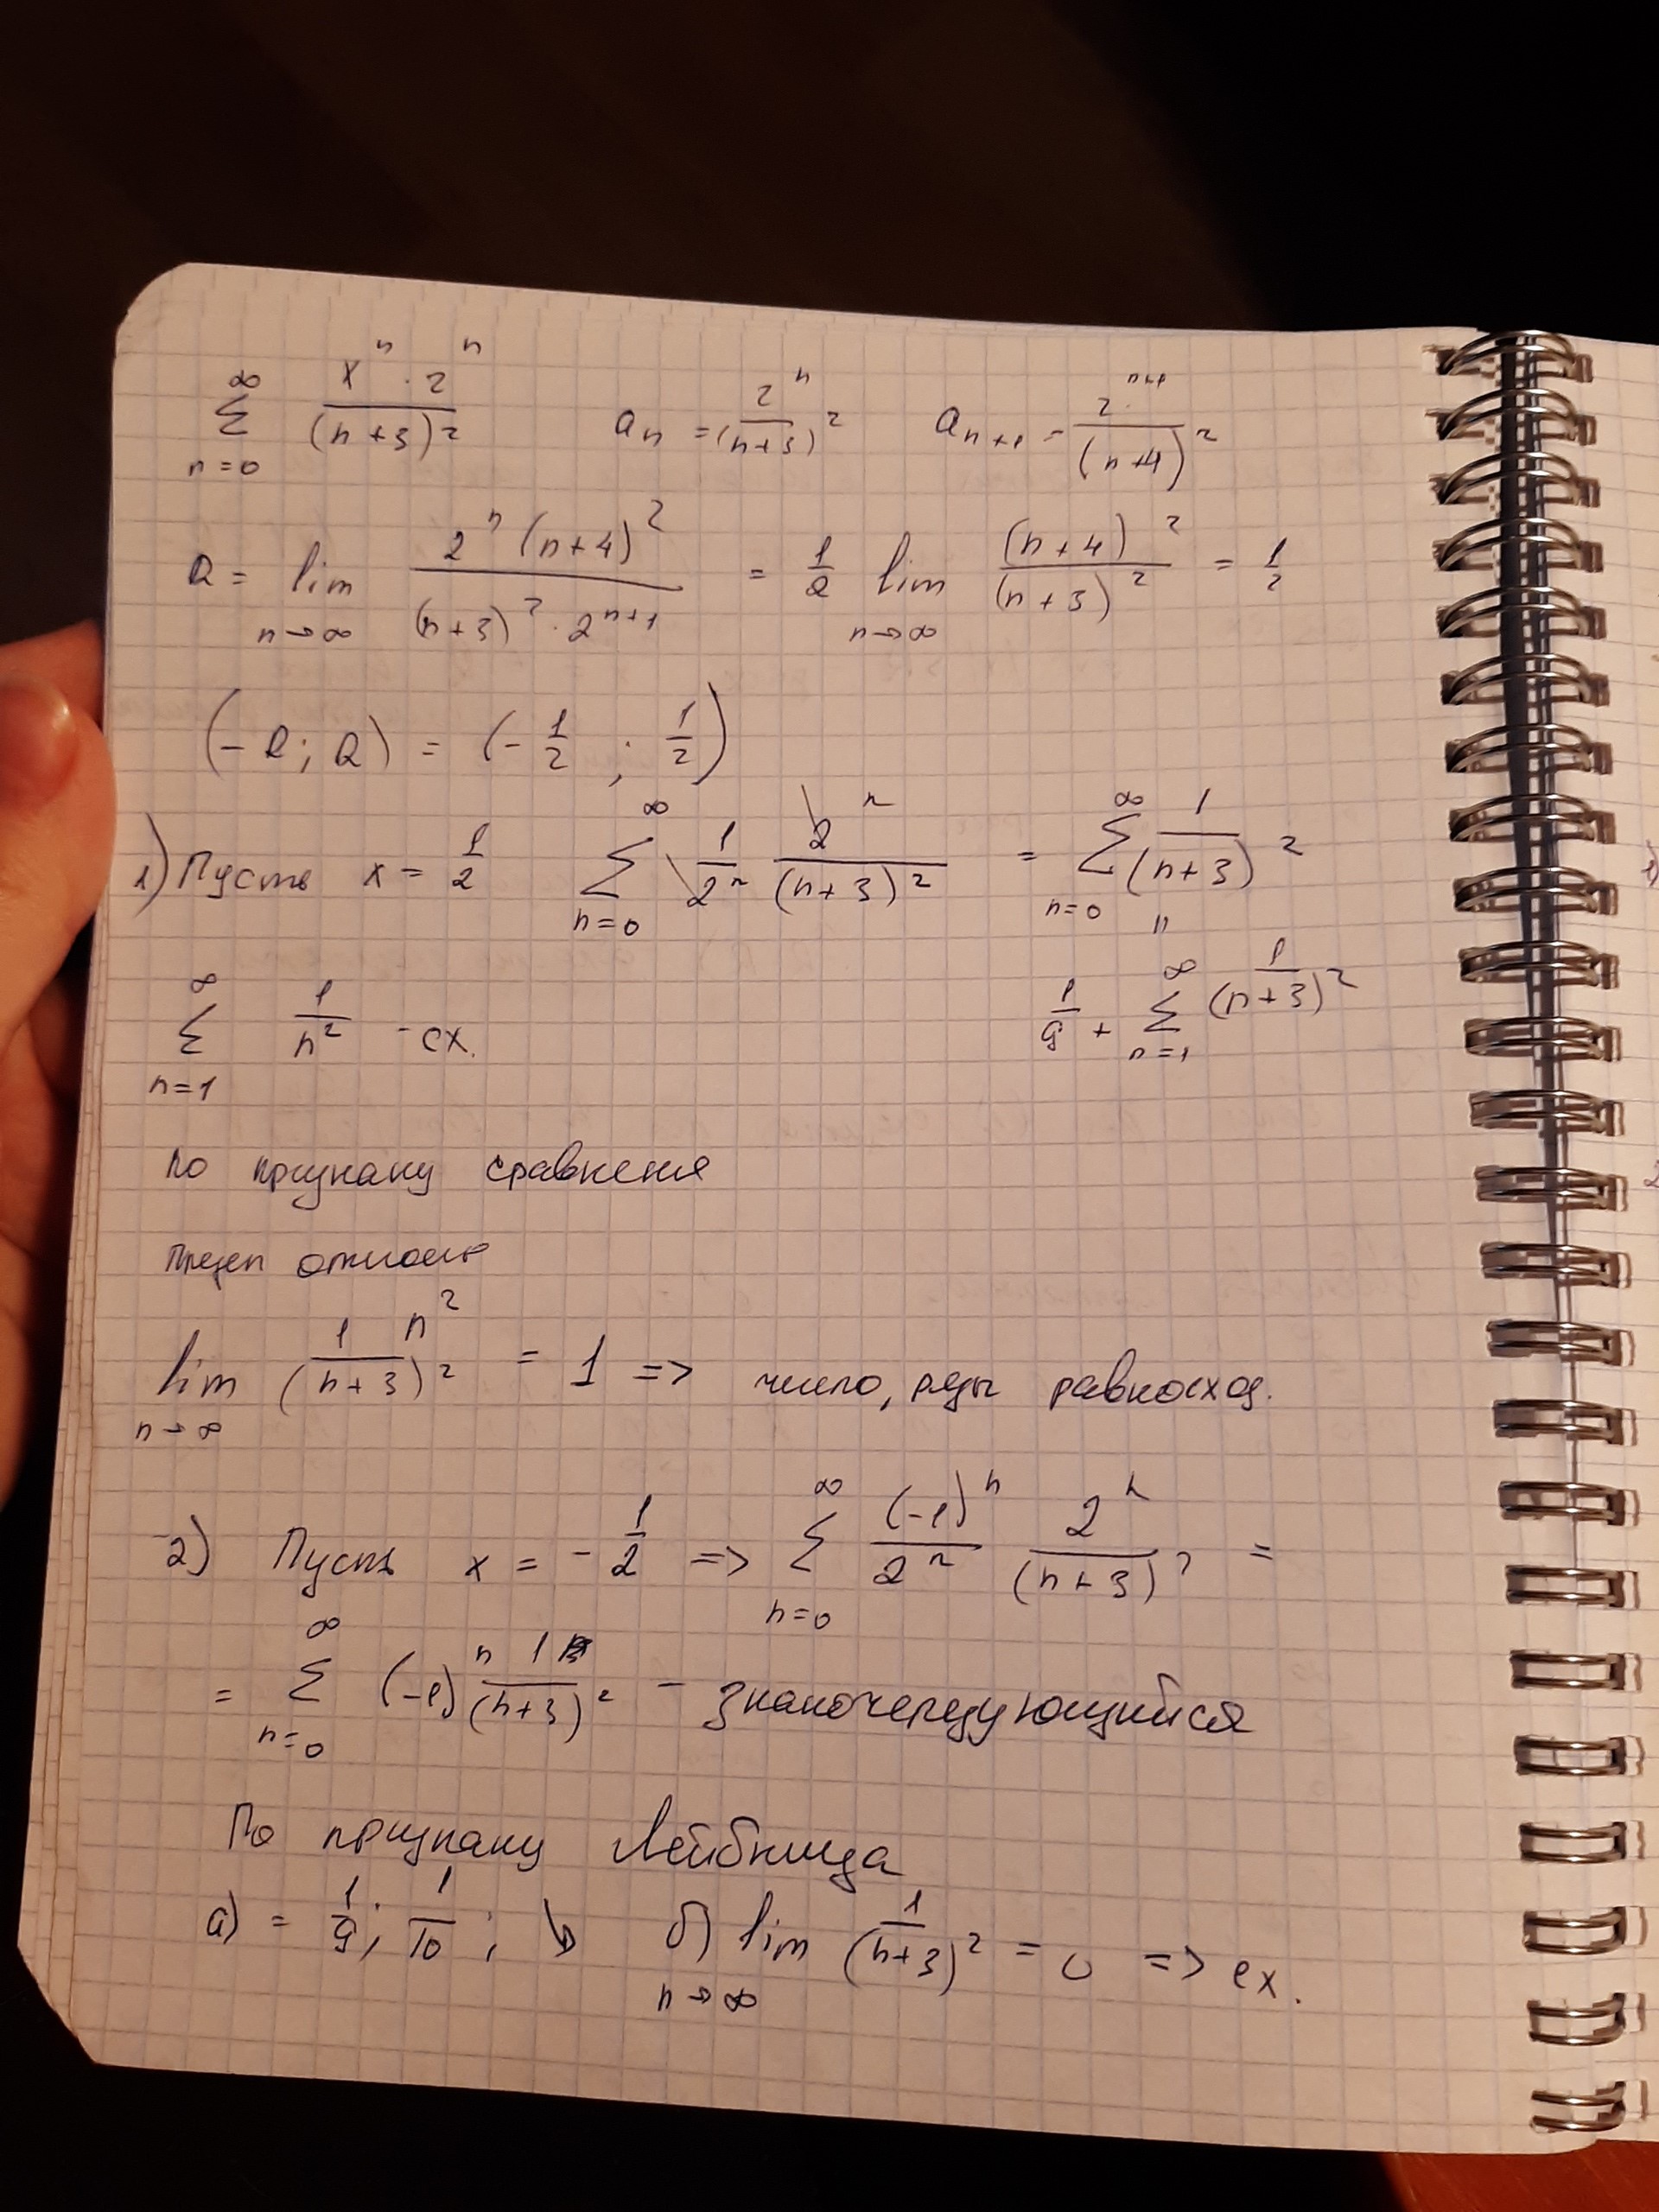 ∞ Σ n=0 x^n · 2^n / (n+3)^2    a_n = 2^n / (n+3)^2    a_{n+1} = 2^{n+1} / (n+4)^2
R = lim n→∞ 2^n (n+4)^2 / (n+3)^2 · 2^{n+1} = 1/2 lim n→∞ (n+4)^2 / (n+3)^2 = 1/2
(-R; R) = (-1/2 ; 1/2)
1) Пусть x = 1/2    ∞ Σ n=0 1/2^n 2^n / (n+3)^2 = ∞ Σ n=0 1 / (n+3)^2
=
∞ Σ n=1 1/n^2 - сх.    1/9 + ∞ Σ n=1 1 / (n+3)^2
по признаку сравнения
Предел относит
lim n→∞ 1 n^2 / (n+3)^2 = 1 => число, ряды равносход.
2) Пусть x = -1/2 => ∞ Σ n=0 (-1)^n / 2^n 2^n / (n+3)^2 =
= ∞ Σ n=0 (-1)^n 1 / (n+3)^2 - знакочередующийся
По признаку Лейбница
а) = 1/9; 1/10; ↘ б) lim n→∞ 1 / (n+3)^2 = 0 => сх.